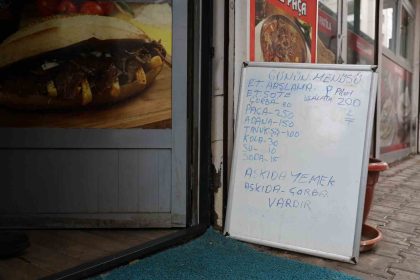 PAÇA
GÜNÜN MENÜSÜ
ET HAŞLAMA
ET SOTE
P. Pilav
SALATA 200
ÇORBA-80
PAÇA-250
ADANA-150
TAVUKŞA-100
KOLA-30
SU- 10
SODA-15
ASKIDA YEMEK
ASKIDA-ÇORBA
VARDIR